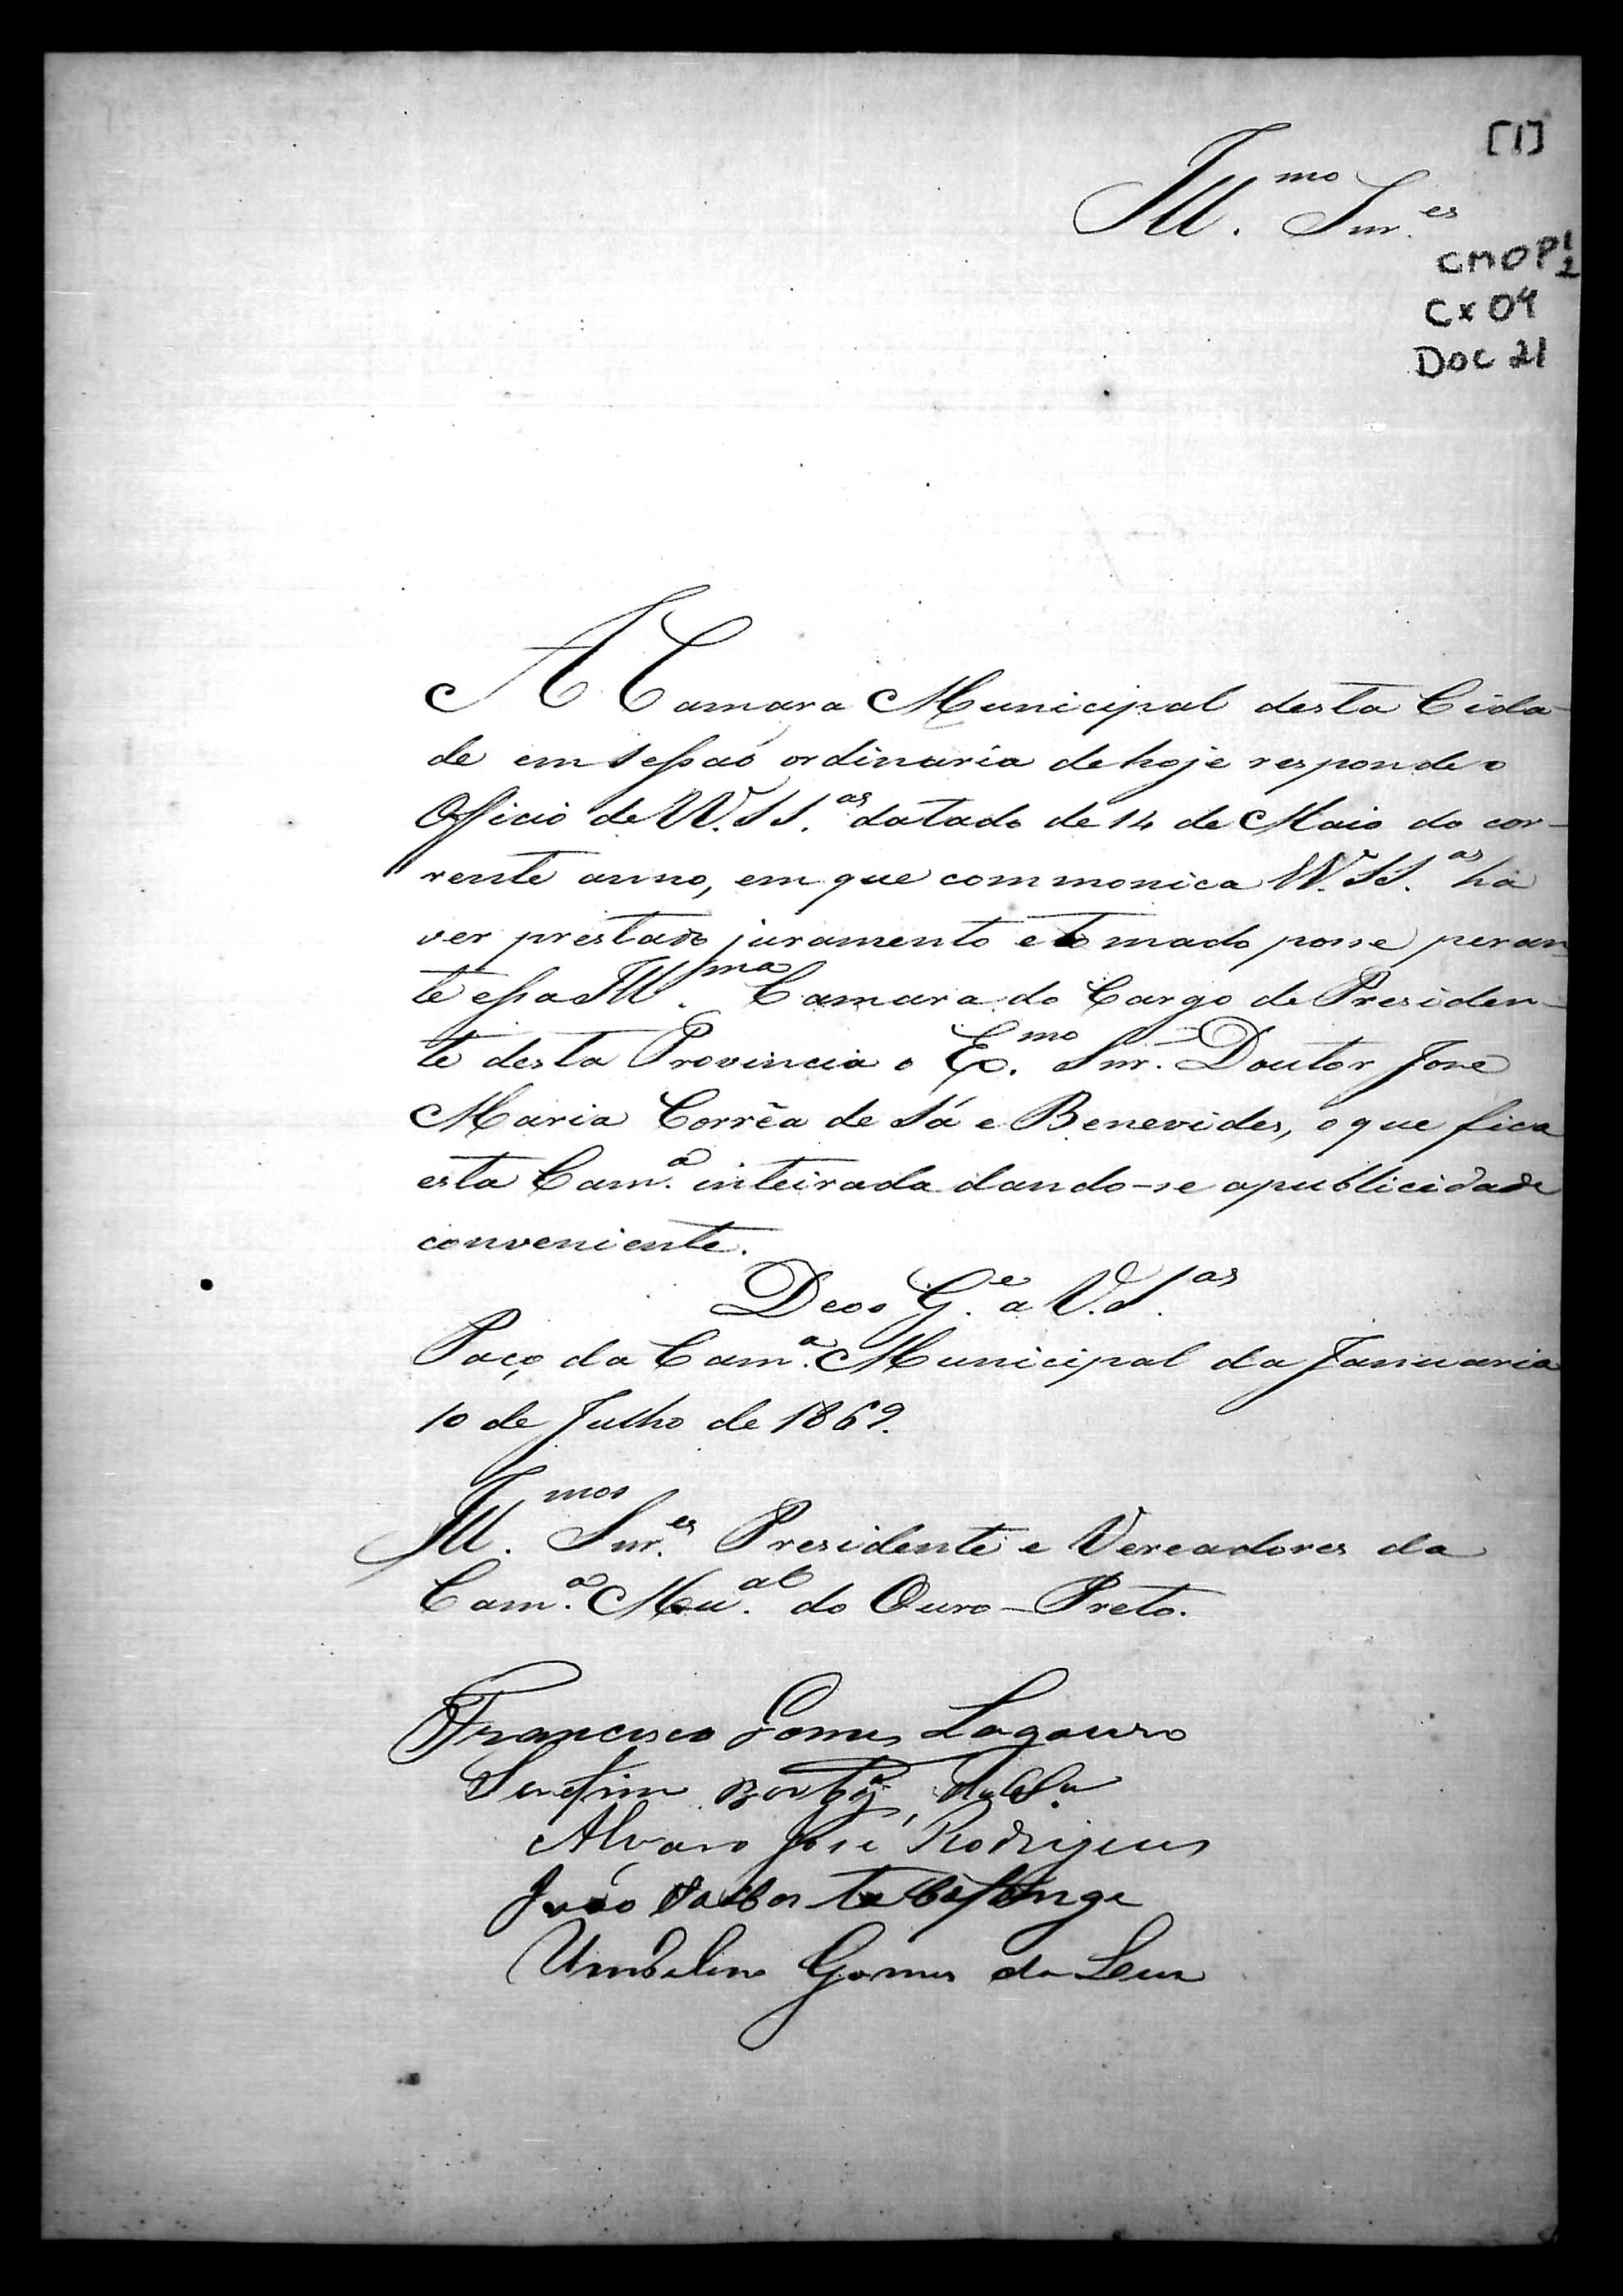 [1]
Ill.mo Snr.es
CMOP 1/2
Cx 04
DOC 21
A Camara Municipal desta Cida-
de em sessaõ ordinaria de hoje responde o
Officio de VV. SS.as datado de 14 de Maio do cor-
rente anno, em que commonica VV. SS.as ha
ver prestado juramento e tomado posse peran-
te essa Ill.ma Camara do Cargo de Presiden-
te desta Provincia o Ex.mo Snr. Doutor José
Maria Corrêa de Sá e Benevides, o que fica
esta Cam.a inteirada dando-se a publicidade
conveniente.
Deos G.e a V. S.as
Paço da Cam.a Municipal da Januaria
10 de Julho de 1869.
Ill.mos Snr.es Presidente e Vereadores da
Cam.a Mu.al do Ouro-Preto.
Francisco Gomes Lagoeiro
Serafim
Alvaro José Rodrigues
João
Umbelino Gomes da